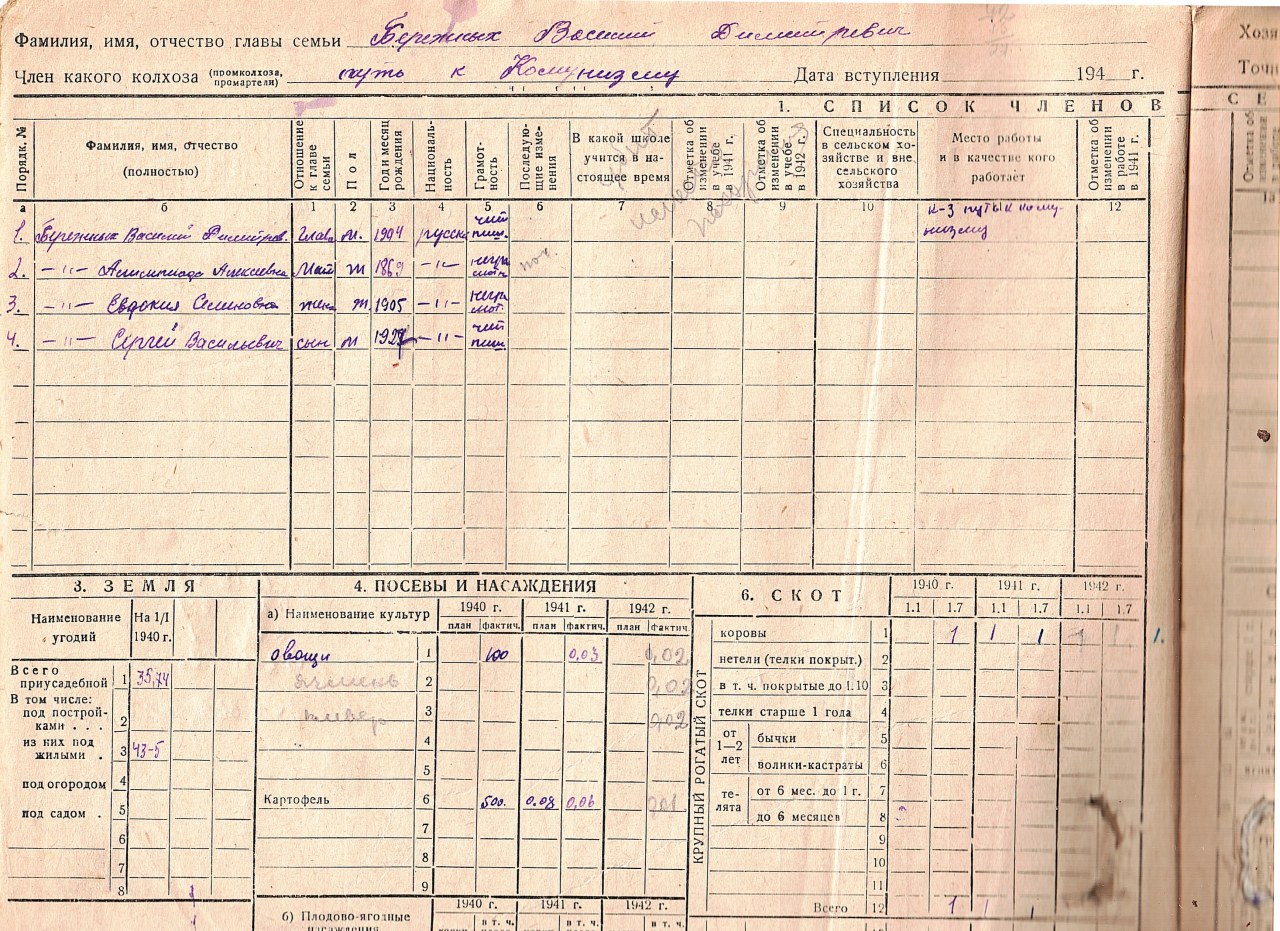 Фамилия, имя, отчество главы семьи Бережных Василий Димитревич
Член какого колхоза (промколхоза, промартели) путь к Комунизму Дата вступления 194 г.
1. СПИСОК ЧЛЕНОВ
Порядк. № Фамилия, имя, отчество (полностью) Отношение к главе семьи Пол Год и месяц рождения Националь-ность Грамот-ность Последую-щие изме-нения В какой школе учится в на-стоящее время Отметка об изменении в учебе в 1941 г. Отметка об изменении в учебе в 1942 г. Специальность в сельском хо-зяйстве и вне сельского хозяйства Место работы и в качестве кого работает Отметка об изменении в работе в 1941 г.
а б 1 2 3 4 5 6 7 8 9 10 12
1. Бережных Василий Димитрев. Глава м. 1904 русски чит пиш. к-з путь к кому-низму
2. —"— Алимпиада Алексеевна Мать ж 1869 —"— негра мотн
3. —"— Евдокия Семиновна жена ж. 1905 —"— негра мот.
4. —"— Сергей Васильевич сын м 1927 —"— чит пиш.
3. ЗЕМЛЯ
Наименование угодий На 1/I 1940 г.
Всего приусадебной 1 35,74
В том числе:
под построй-ками . . . 2
из них под жилыми . 3 43-5
под огородом 4
под садом . 5
6
7
8
4. ПОСЕВЫ И НАСАЖДЕНИЯ
а) Наименование культур 1940 г. 1941 г. 1942 г.
план фактич. план фактич. план фактич.
овощи 1 100 0,03 0,02
ячмень 2 0,02
клевер 3 0,02
4
5
Картофель 6 500. 0.08 0,06
7
8
9
б) Плодово-ягодные насаждения 1940 г. 1941 г. 1942 г.
в т. ч. в т. ч. в т. ч.
6. СКОТ
1940 г. 1941 г. 1942 г.
1.1 1.7 1.1 1.7 1.1 1.7
КРУПНЫЙ РОГАТЫЙ СКОТ
коровы 1 1 1 1 1 1 1.
нетели (телки покрыт.) 2
в т. ч. покрытые до 1.10 3
телки старше 1 года 4
от 1—2 лет бычки 5
волики-кастраты 6
те-лята от 6 мес. до 1 г. 7
до 6 месяцев 8
9
10
11
Всего 12 1 1 1
Хозя
Точн
СЕ
13